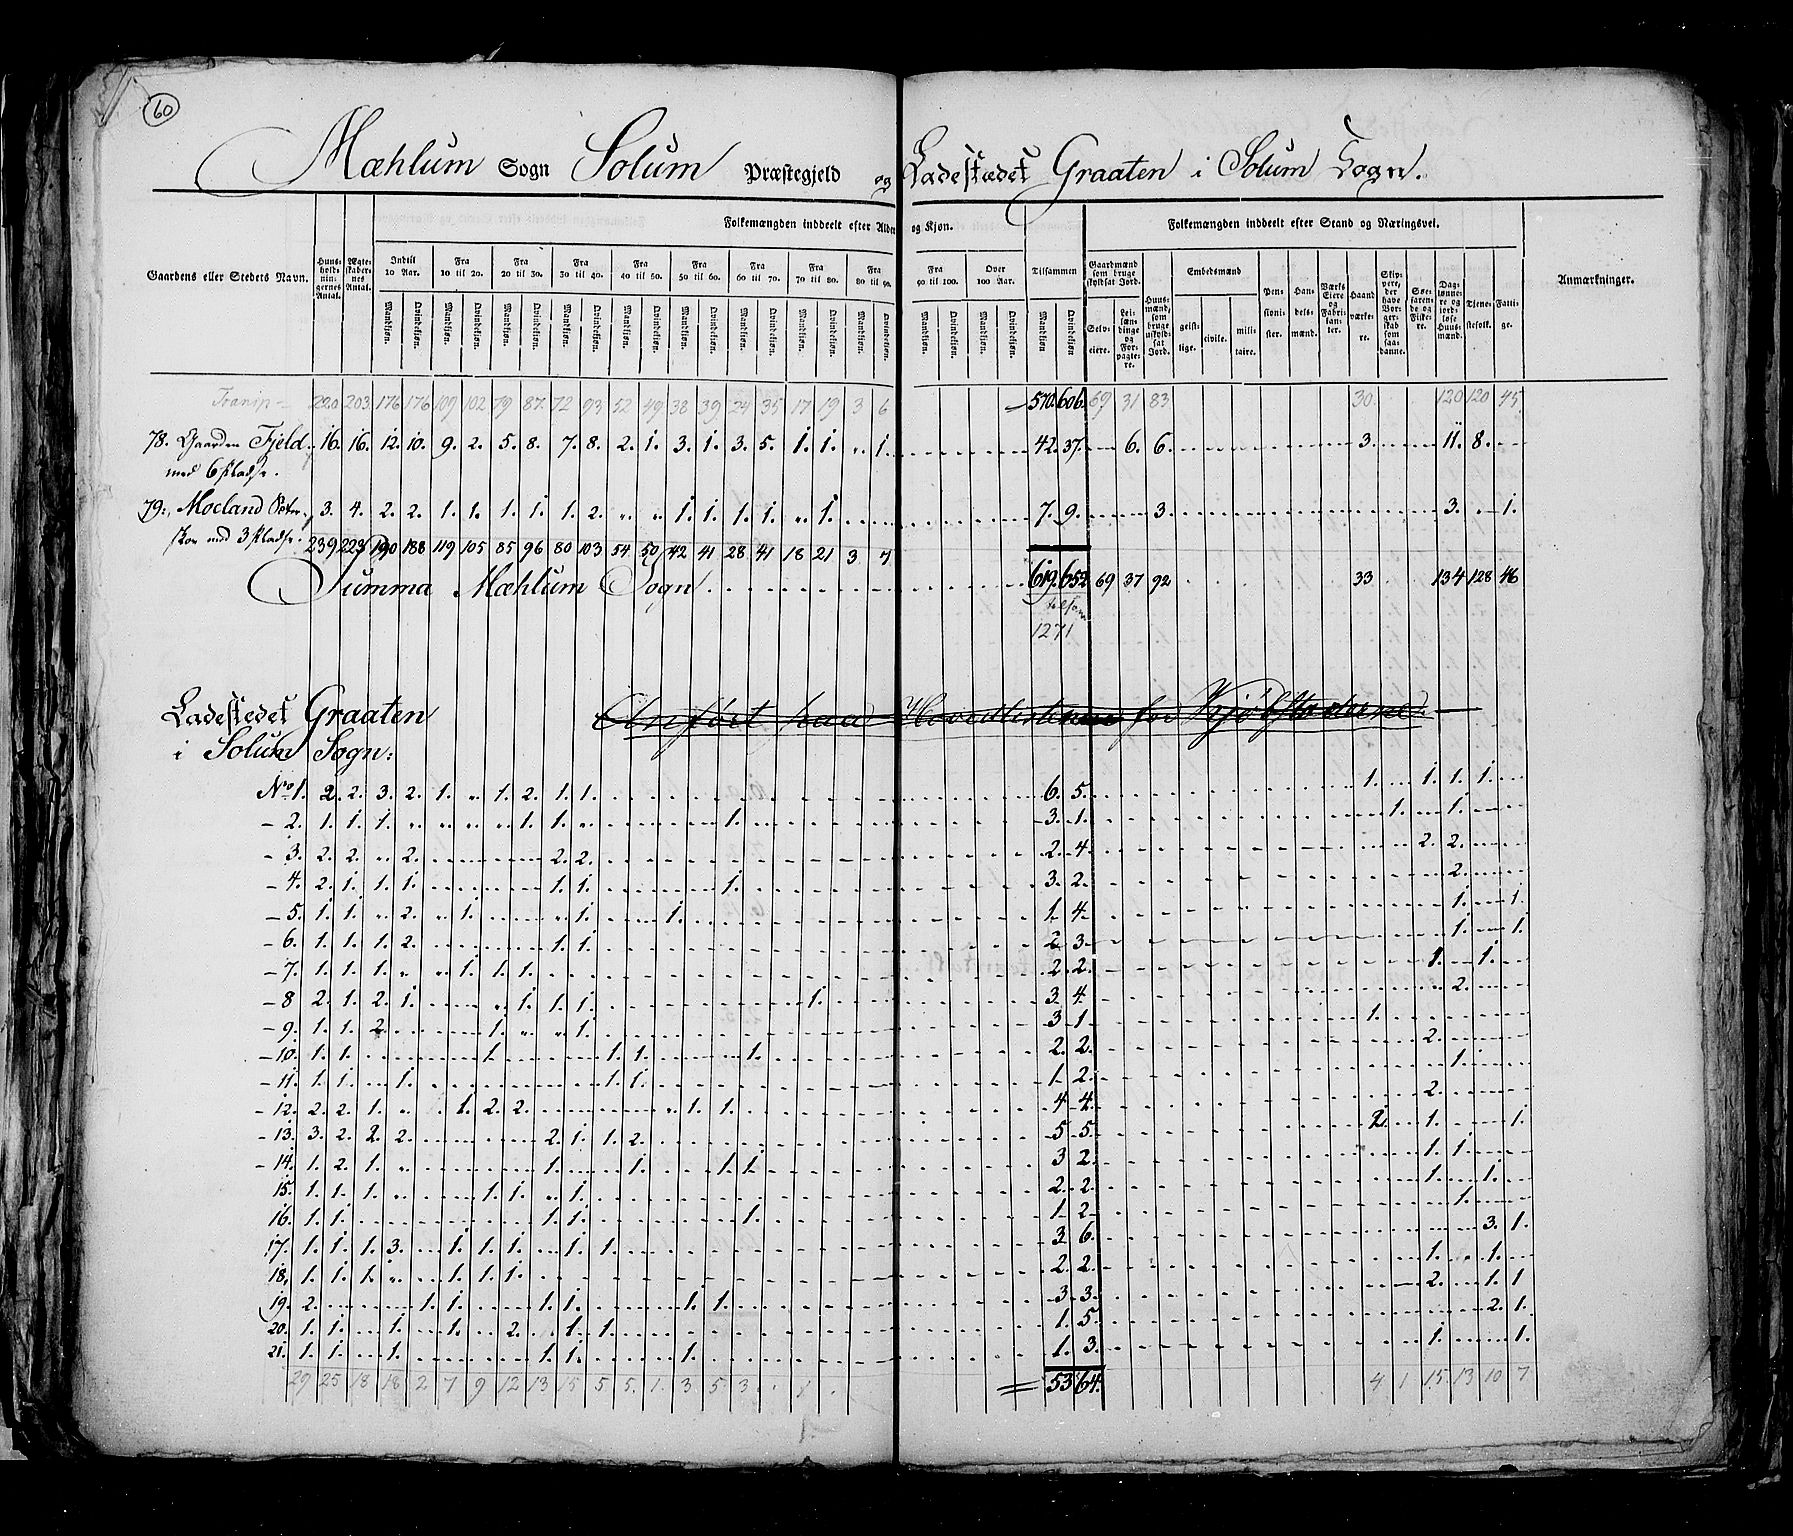 60
Mæhlum Sogn Solum Præstegjeld og Ladestedet Graaten i Solum Sogn.
Folkemængden inddeelt efter Alder og Kjøn. Folkemængden inddeelt efter Stand og Næringsvei.
Gaardens eller Stedets Navn. Huus-holdningernes Antal. Ægteskabernes Antal. Indtil 10 Aar. Fra 10 til 20. Fra 20 til 30. Fra 30 til 40. Fra 40 til 50. Fra 50 til 60. Fra 60 til 70. Fra 70 til 80. Fra 80 til 90. Fra 90 til 100. Over 100 Aar. Tilsammen Gaardmænd som bruge skyldsat Jord. Huusmænd, som bruge uskyldsat Jord. Embedsmænd Pensionister. Handelsmænd. Værks Eiere og Fabrikanter. Haandværkere. Skippere, der have Borgerskab som saadanne. Søefarende og Fiskere. Daglønnere og jordløse Huusmænd. Tjenestefolk. Fattige. Anmærkninger.
Mandkjøn. Qvindekjøn. Mandkjøn. Qvindekjøn. Mandkjøn. Qvindekjøn. Mandkjøn. Qvindekjøn. Mandkjøn. Qvindekjøn. Mandkjøn. Qvindekjøn. Mandkjøn. Qvindekjøn. Mandkjøn. Qvindekjøn. Mandkjøn. Qvindekjøn. Mandkjøn. Qvindekjøn. Mandkjøn. Qvindekjøn. Mandkjøn Qvindekjøn. Selveiere. Leilændinge og Forpagtere. geistlige. civile. militaire.
Transp 220 203 176 176 109 102 79 87 72 93 52 49 38 39 24 35 17 19 3 6 570. 606. 69 31 83 30. 120 120 45
78. Gaarden Fjeld 16. 16. 12. 10. 9. 2. 5. 8. 7. 8. 2. 1. 3. 1. 3. 5. 1. 1. " 1. 42. 37. 6. 6. 3. 11. 8.
med 6 Pladse.
79. Moeland 3. 4. 2. 2. 1. 1. 1. 1. 1. 2. " " 1. 1. 1. 1. " 1. 7. 9. 3. 3. 1.
med 3 Pladse.
239 223 190 188 119 105 85 96 80 103 54 50 42 41 28 41 18 21 3 7
Summa Mæhlum Sogn 619. 652 69 37 92 33 134 128 46
tilsam
1271
Ladestedet Graaten Anført paa Hovedlisterne for Kjøbstæderne.
i Solum Sogn:
No 1. 2. 2. 3. 2. 1. " 1. 2. 1. 1. 6. 5. 1. 1. 1. 1.
2. 1. 1. 1. " " " " 1. 1. " 1. 3. 1. 1. 1.
3. 2. 2. " 2. 2. 2. 2. 4. 2. 2.
4. 2. 1. 1. 1. 1. 1. 1. 3. 2. 2.
5. 1. 1. " 2. " 1. " 1. 1. 1. 4. 1. 1.
6. 1. 1. 1. 2. 1. 1. 2. 3. 1. 1.
7. 1. 1. 1. " " 1. 1. 1. 2. 2. 1. 1.
8 2. 1. 2. 1. " 1. 1. 1. 1. 3. 4. 2.
9. 1. 1. 2. 1. " " 1. 3. 1. 1.
10. 1. 1. 1. 1. 1. 1. 2. 2. 2.
11. 1. 1. 1. 1. 1. 1. 2. 1.
12. 2. 2. 1. " 1. 2. 2. " 1. 1. 4. 4. 2.
13. 3. 2. 2. 2. 2. 1. 1. 2. 5. 5. 2. 1. 1.
14. 1. 2. 1. " 1. 1. 1. 1. 3 2. 1. 1.
15. 1. 1. 1. " 1. 1. " 1. 2. 2. 1. 1.
16. 1. 1. 1. 1. 1. 1. 2. 1.
17. 1. 1. 1. 3. 1. 1. 1. 1. 1. 3. 6. 3. 1.
18. 1. 1. 1. " 1. 1. 1. 2. 2. 1. 1.
19. 2. 1. 1. 1. 1. 1. 1. 3. 3. 2. 1. 1
20. 1. 1. 1. 1. 2. 1. 1. 1. 5. 2. 1.
21. 1. 1. 1. 1. 1. 1. 1. 3. 1. 1.
29 25 18 18 2 7 9 12 13 15 5 5. 1. 3 5. 3 1 53 64. 4 1 15 13 10 7